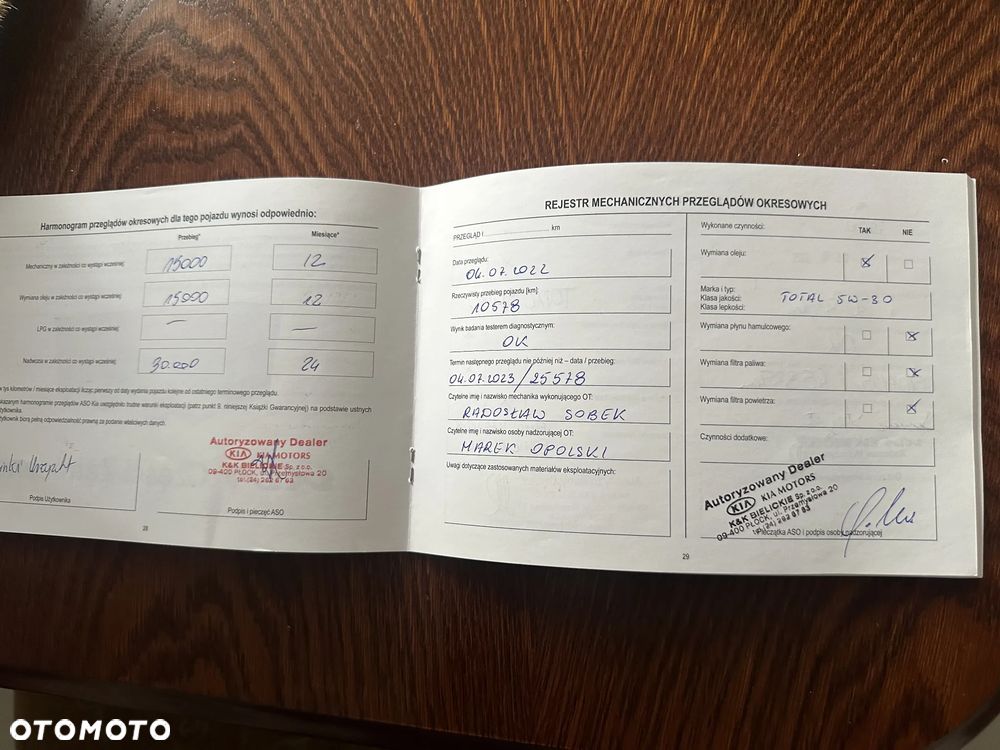 Harmonogram przeglądów okresowych dla tego pojazdu wynosi odpowiednio:
Przebieg* Miesiące*
Mechaniczny w zależności co wystąpi wcześniej: 15000 12
Wymiana oleju w zależności co wystąpi wcześniej: 15000 12
LPG w zależności co wystąpi wcześniej: — —
Nadwozia w zależności co wystąpi wcześniej: 30.000 24
w tys kilometrów / miesiące eksploatacji licząc pierwszy od daty wydania pojazdu kolejne od ostatniego terminowego przeglądu.
harmonogramie przeglądów ASO Kia uwzględniło trudne warunki eksploatacji (patrz punkt 9. niniejszej Książki Gwarancyjnej) na podstawie ustnych
bierze pełną odpowiedzialność prawną za podanie właściwych danych.
Autoryzowany Dealer
KIA KIA MOTORS
K&K BIELICKIE Sp. z o.o.
09-400 PŁOCK, ul. Przemysłowa 20
tel.(24) 262 67 63
Podpis Użytkownika
Podpis i pieczęć ASO
28
REJESTR MECHANICZNYCH PRZEGLĄDÓW OKRESOWYCH
PRZEGLĄD I km
Data przeglądu:
04.07.2022
Rzeczywisty przebieg pojazdu [km]:
10578
Wynik badania testerem diagnostycznym:
OK
Termin następnego przeglądu nie później niż – data / przebieg:
04.07.2023/25578
Czytelne imię i nazwisko mechanika wykonującego OT:
RADOSŁAW SOBEK
Czytelne imię i nazwisko osoby nadzorującej OT:
MAREK OPOLSKI
Uwagi dotyczące zastosowanych materiałów eksploatacyjnych:
Wykonane czynności: TAK NIE
Wymiana oleju:
Marka i typ:
Klasa jakości: TOTAL 5W-30
Klasa lepkości:
Wymiana płynu hamulcowego:
Wymiana filtra paliwa:
Wymiana filtra powietrza:
Czynności dodatkowe:
Autoryzowany Dealer
KIA KIA MOTORS
K&K BIELICKIE Sp. z o.o.
09-400 PŁOCK, ul. Przemysłowa 20
tel.(24) 262 67 63
Pieczątka ASO i podpis osoby nadzorującej
29
OTOMOTO